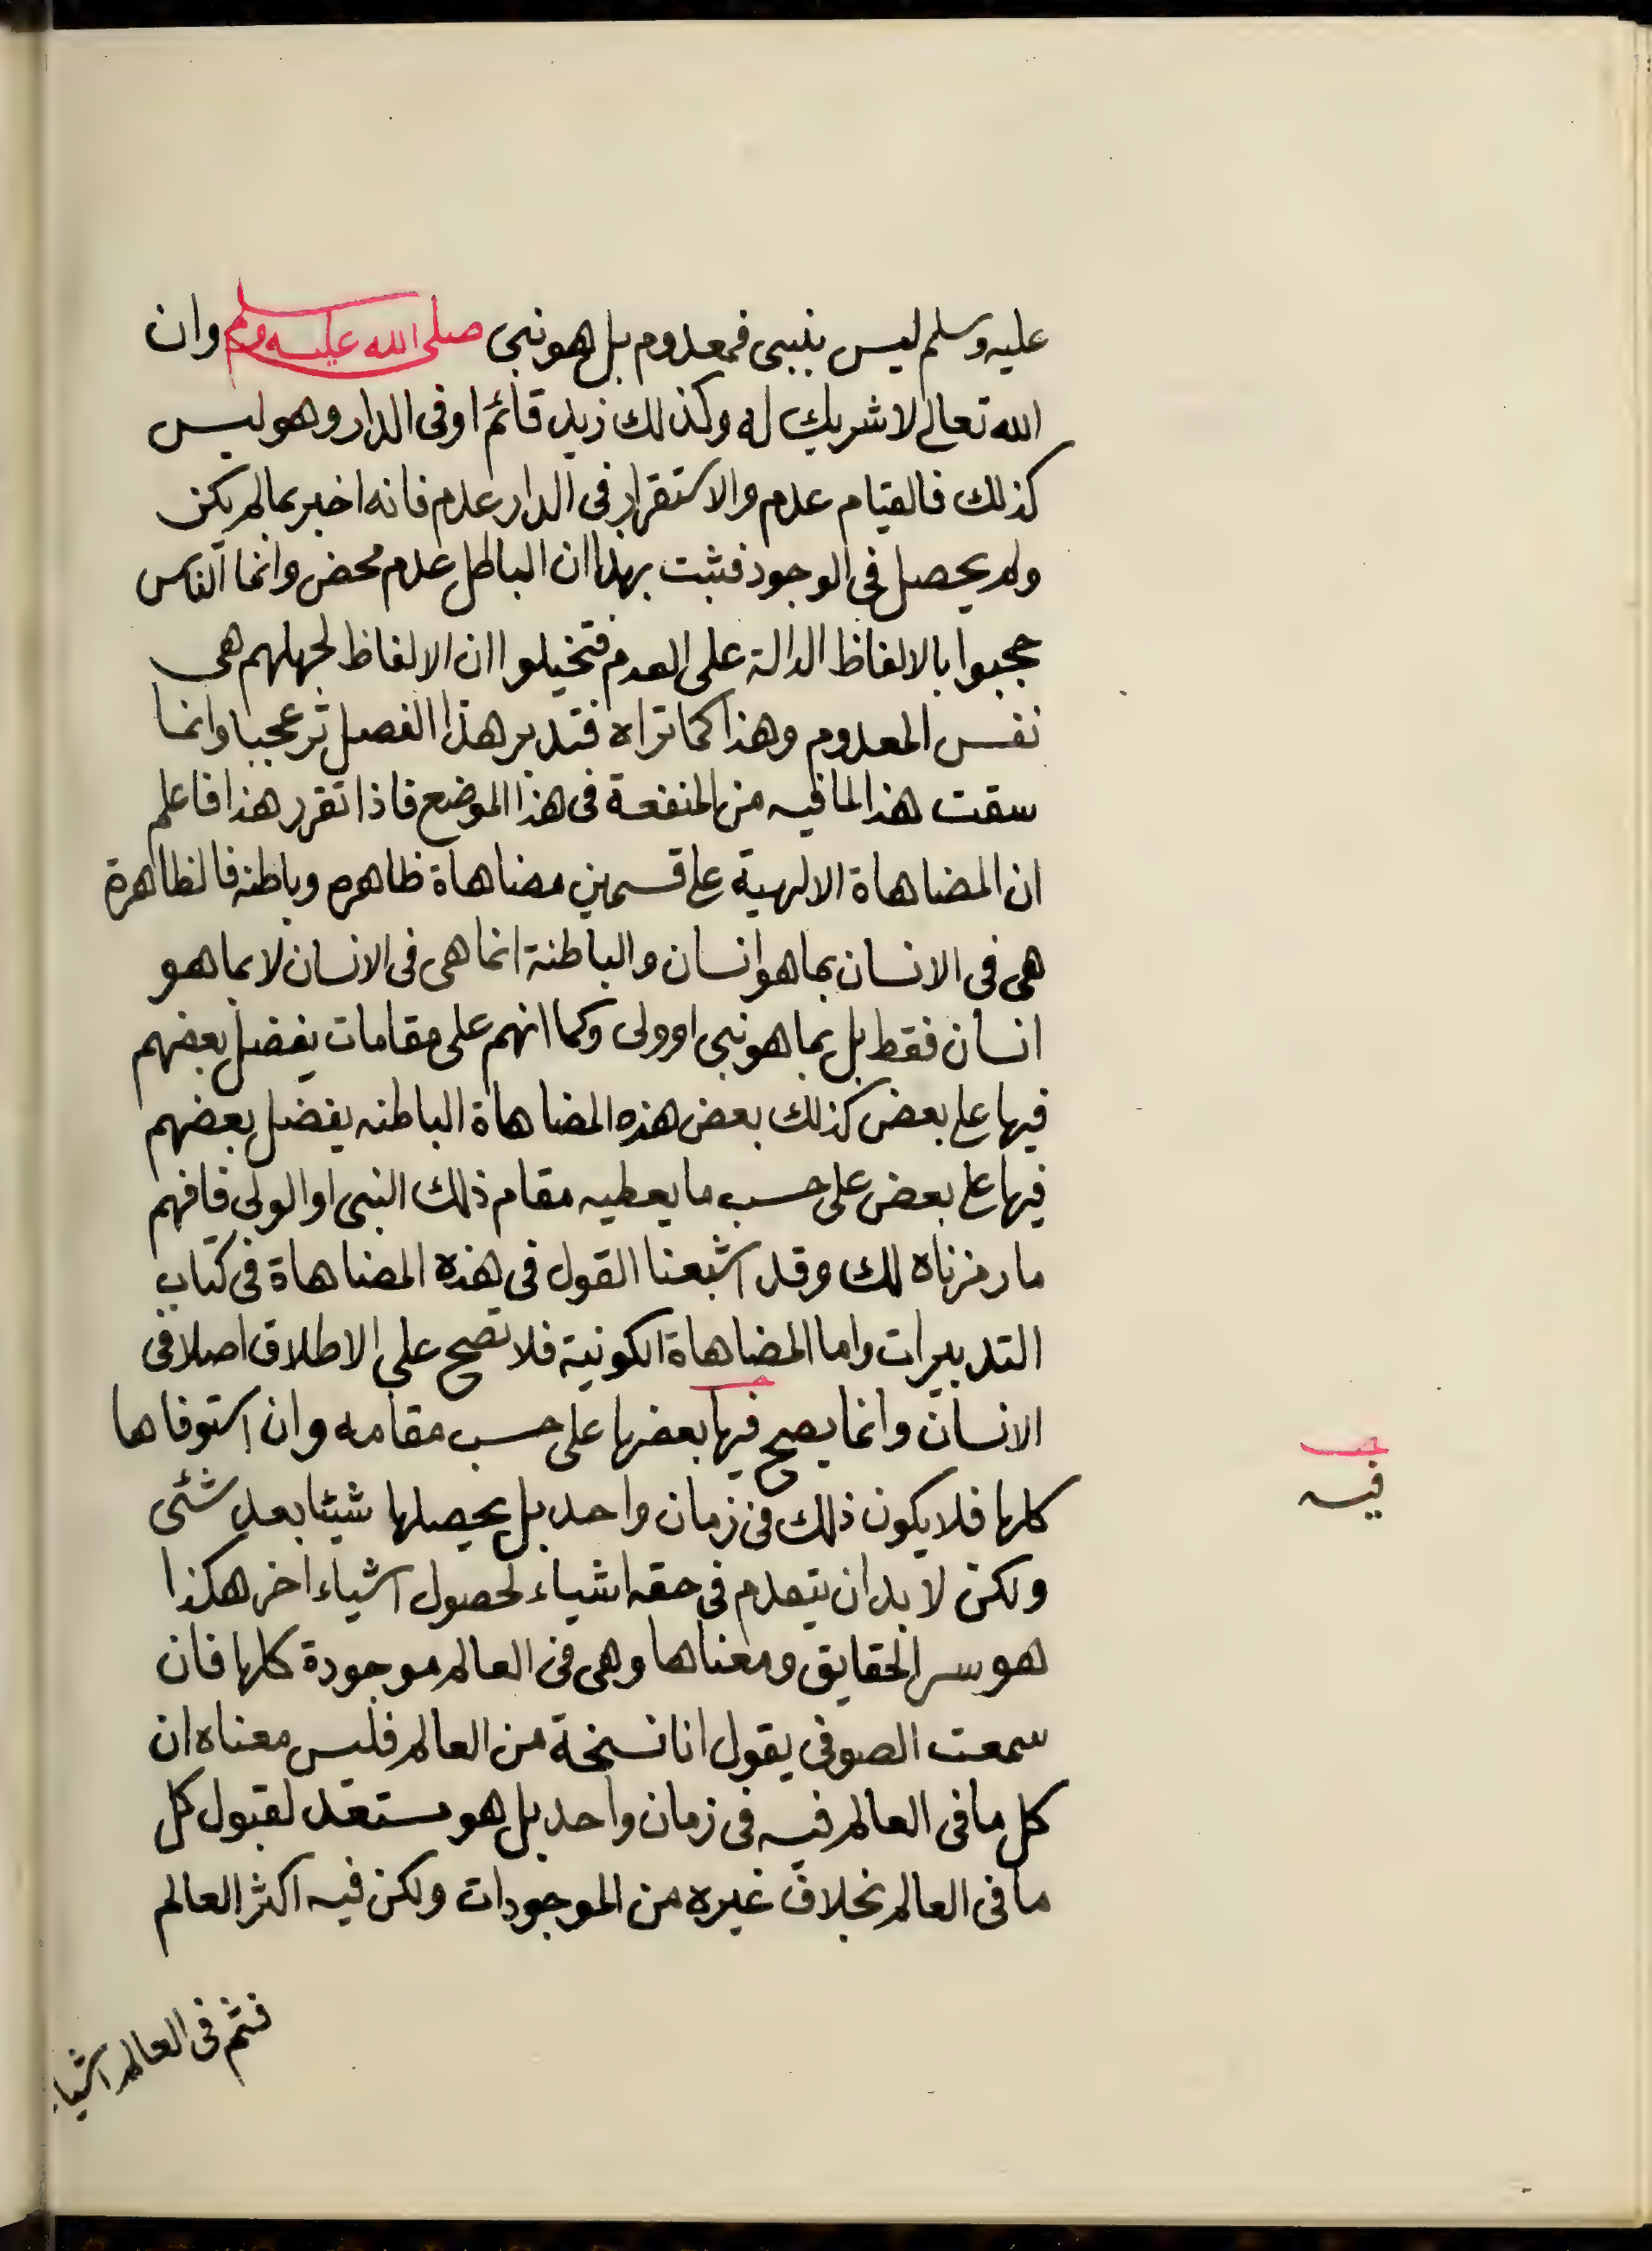 عليه وسلم ليس بنبي فمعدوم بل هو نبي صلى الله عليه وسلم وان
الله تعالى لا شريك له وكذلك زيد قائم او فى الدار وهو ليس
كذلك فالقيام عدم والاستقرار فى الدار عدم فانه اخبر بما لم يكن
ولم يحصل فى الوجود فثبت بهذا ان الباطل عدم محض وانما الناس
حجبوا بالالفاظ الدالة على العدم فتخيلوا ان الالفاظ لجهلهم هى
نفس المعدوم وهذا كما تراه فتدبر هذا الفصل تر عجبا وانما
سقت هذا لما فيه من المنفعة فى هذا الموضع فاذا تقرر هذا فاعلم
ان المضاهاة الالهية على قسمين مضاهاة ظاهره وباطنه فالظاهرة
هى فى الانسان بما هو انسان والباطنة انما هى فى الانسان لا بما هو
انسان فقط بل بما هو نبى او ولى وكما انهم على مقامات يفضل بعضهم
فيها على بعض كذلك بعض هذه المضاهاة الباطنه يفضل بعضهم
فيها على بعض على حسب ما يعطيه مقام ذلك النبى او الولى فافهم
ما رمزناه لك وقد اشبعنا القول فى هذه المضاهاة فى كتاب
التدبيرات واما المضاهاة الكونية فلا تصح على الاطلاق اصلا فى
الانسان وانما يصح فيها بعضها على حسب مقامه وان استوفاها
فيه
كلها فلا يكون ذلك فى زمان واحد بل يحصلها شيئا بعد شئى
ولكن لا بد ان يتعدم فى حقه اشياء لحصول اشياء اخر هكذا
هو سر الحقايق ومعناها وهى فى العالم موجودة كلها فان
سمعت الصوفى يقول انا نسخة من العالم فليس معناه ان
كل ما فى العالم فيه فى زمان واحد بل هو مستعد لقبول كل
ما فى العالم بخلاف غيره من الموجودات ولكن فيه اكثر العالم
فثم فى العالم اشيا